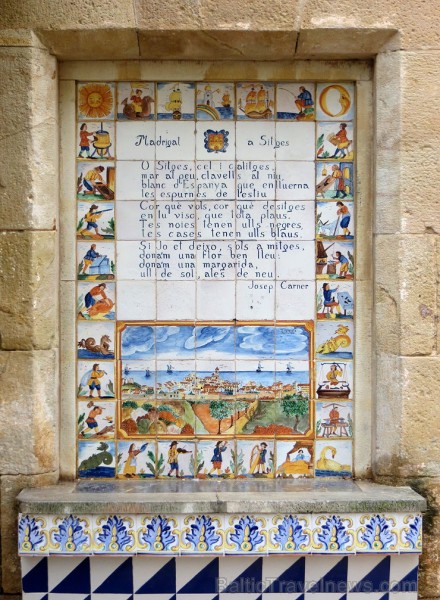 Madrigal a Sitges
O Sitges, cel i calitges,
mar al peu, clavells al niu,
blanc d'Espanya que enlluerna
les espurnes de l'estiu.
Cor que vols, cor que desitges
en tu visc, que tota plaus.
Tes noies tenen ulls negres,
tes cases tenen ulls blaus.
Si jo et deixo, sols a mitges,
donam una flor ben lleu:
donam una margarida,
ull de sol, ales de neu.
Josep Carner
BalticTravelNews.com